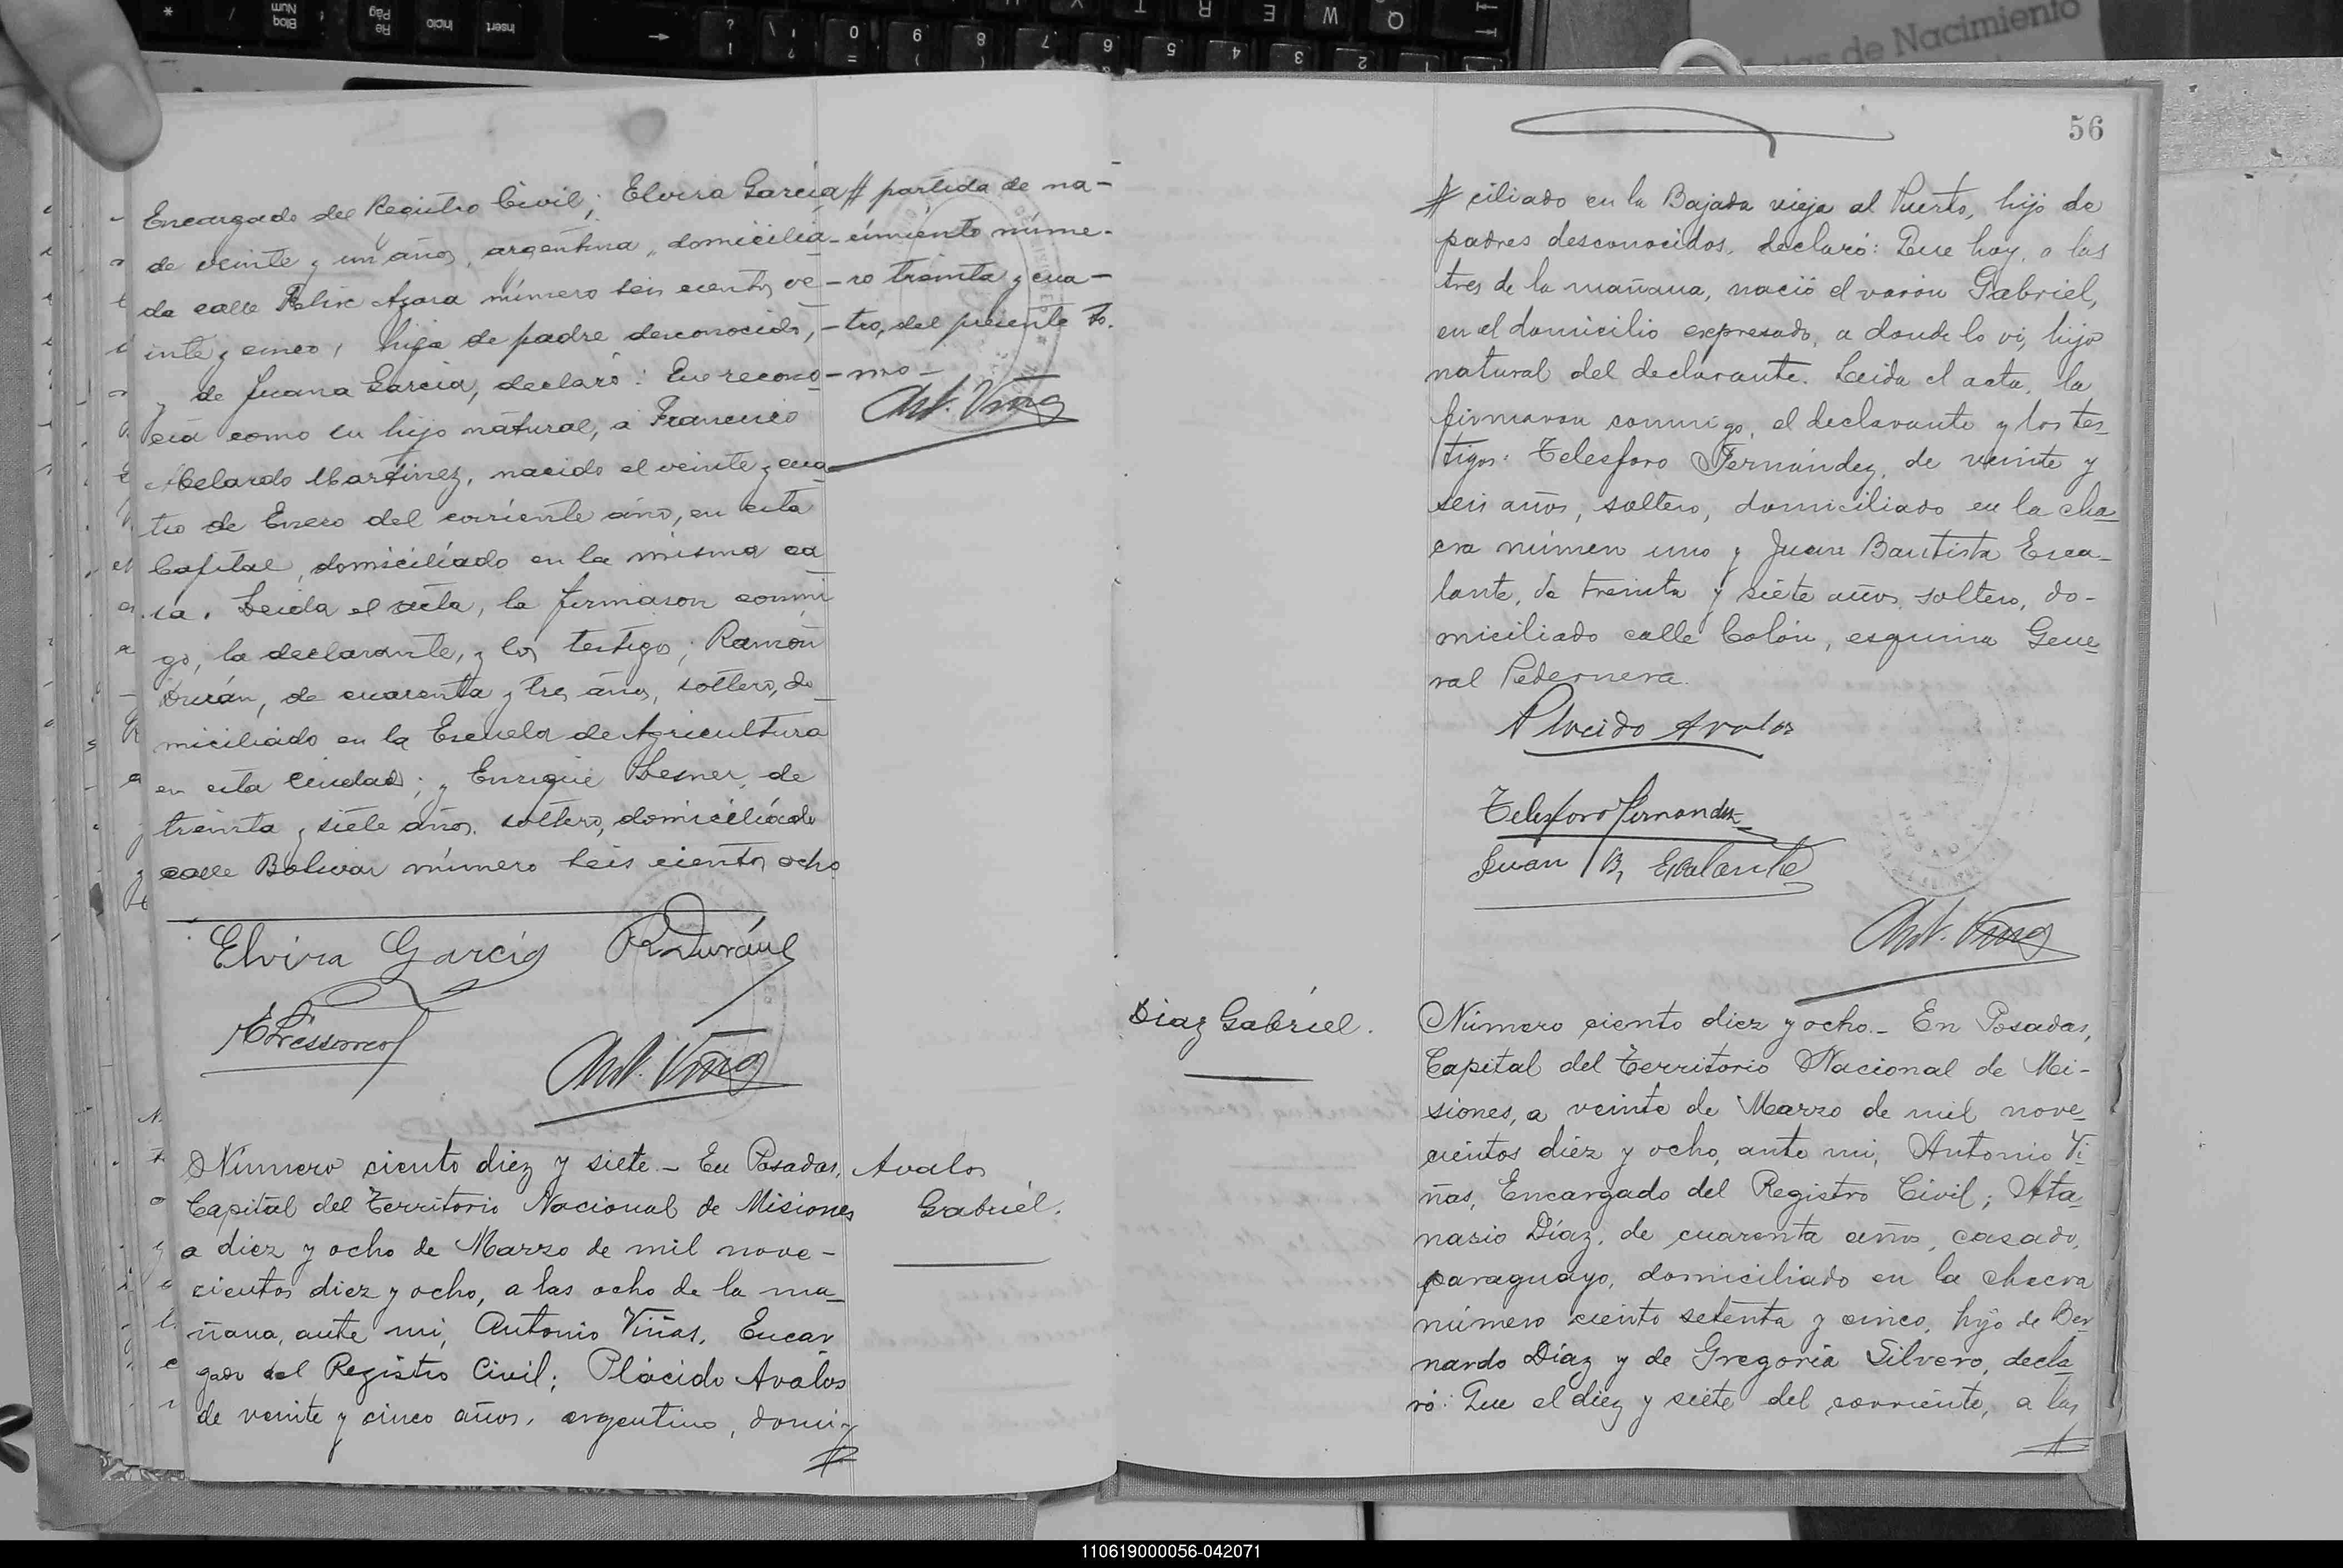 Encargado del Registro Civil; Elvira García
de veinte y un años, argentina, domicilia-
da calle Felix Azara número seis cientos ve-
inte y cinco, hija de padre desconocido,
y de Juana García, declaró: Que recono-
cía como su hijo natural, a Francisco
Abelardo Martinez, nacido el veinte y cua-
tro de Enero del corriente año, en esta
Capital, domiciliado en la misma ca
sa. Leida el acta, la firmaron conmi
go, la declarante, y los testigos; Ramón
Durán, de cuarenta y tres años, soltero, do
miciliado en la Escuela de Agricultura
en esta Ciudad; y Enrique de
treinta y siete años, soltero, domiciliado
calle Bolivar número seis cientos ocho
# partida de na-
cimiento núme-
ro treinta y cua-
tro, del presente to.
mo-
Ant. Viñas
Elvira García R Durán
Ant. Viñas
Número ciento diez y siete.- En Posadas,
Capital del Territorio Nacional de Misiones
a diez y ocho de Marzo de mil nove-
cientos diez y ocho, a las ocho de la ma-
ñana, ante mi, Antonio Viñas, Encar
gado del Registro Civil; Plácido Avalos
de veinte y cinco años, argentino, domi-
#
Avalos
Gabriel.
56
# ciliado en la Bajada vieja al Puerto, hijo de
padres desconocidos, declaró: Que hoy, a las
tres de la mañana, nació el varón Gabriel,
en el domicilio expresado, a donde lo vi, hijo
natural del declarante. Leida el acta, la
firmaron conmigo, el declarante y los tes-
tigos: Telesforo Fernández, de veinte y
seis años, soltero, domiciliado en la cha
cra número uno y Juan Bautista Esca-
lante, de treinta y siete años, soltero, do-
miciliado calle Colón, esquina Gene
ral Pedernera.
Plácido Avalos
Telesforo Fernandez
Juan B, Escalante
Ant. Viñas
Diaz Gabriel.
Número ciento diez y ocho.- En Posadas,
Capital del Territorio Nacional de Mi-
siones, a veinte de Marzo de mil nove-
cientos diez y ocho, ante mi, Antonio Vi
ñas, Encargado del Registro Civil; Ata-
nasio Díaz, de cuarenta años, casado,
paraguayo, domiciliado en la chacra
número ciento setenta y cinco, hijo de Ber
nardo Díaz y de Gregoria Silvero, decla
ró: Que el diez y siete del corriente, a las
#
110619000056-042071